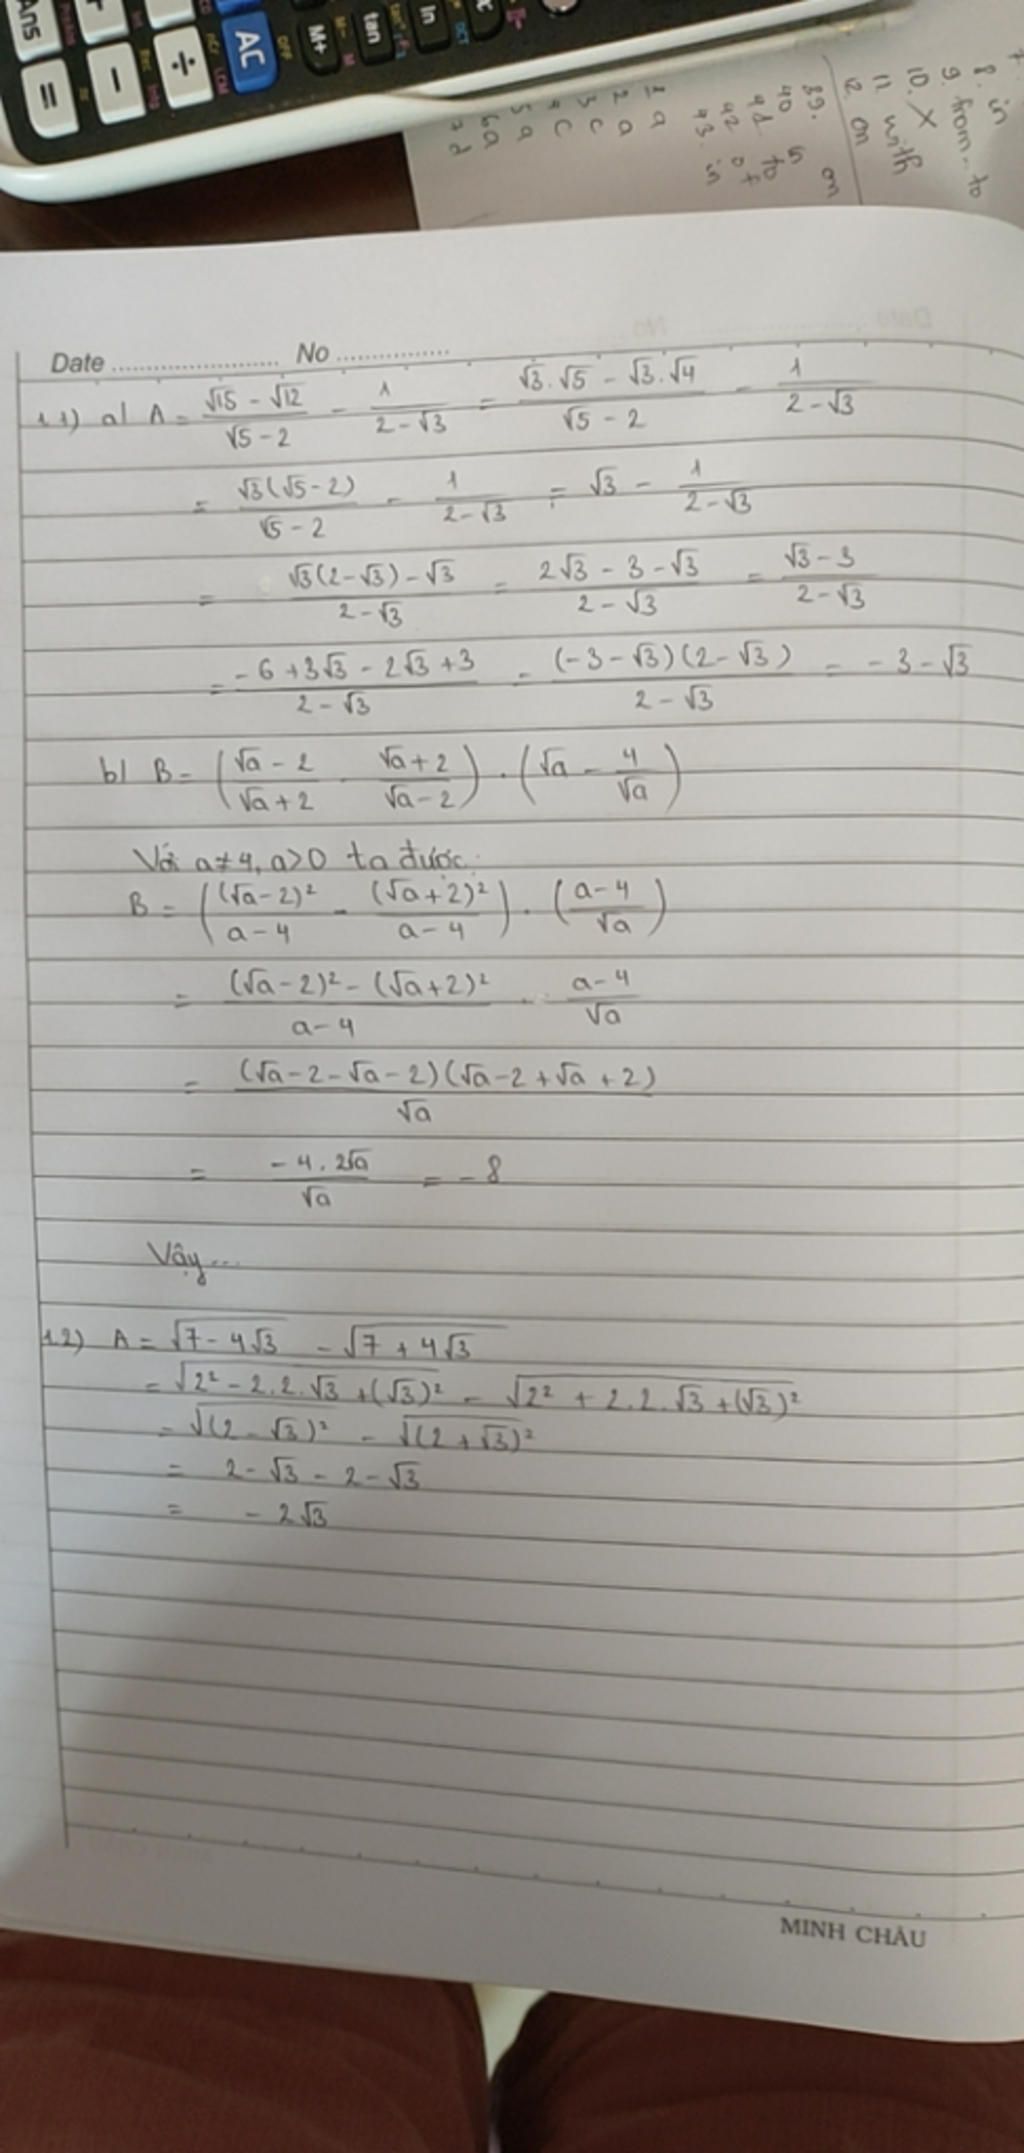 Ans
AC
M+
tan
ln
=
-
÷
8. in
9. from - to
10. X
11. with
12. on
39. on
40 5
41 to
42 of
43. in
1 a
2 a
3 c
4 c
5 a
6a
7 d
Date ........................ No ................
1.1) a) A = (√15 - √12)/(√5 - 2) - 1/(2 - √3) = (√3.√5 - √3.√4)/(√5 - 2) - 1/(2 - √3)
= √3(√5 - 2)/(√5 - 2) - 1/(2 - √3) = √3 - 1/(2 - √3)
= (√3(2 - √3) - √3)/(2 - √3) = (2√3 - 3 - √3)/(2 - √3) = (√3 - 3)/(2 - √3)
= (-6 + 3√3 - 2√3 + 3)/(2 - √3) = (-3 - √3)(2 - √3)/(2 - √3) = -3 - √3
b) B = ((√a - 2)/(√a + 2) - (√a + 2)/(√a - 2)) . (√a - 4/√a)
Với a ≠ 4, a > 0 ta được:
B = ((√a - 2)²/(a - 4) - (√a + 2)²/(a - 4)) . ((a - 4)/√a)
= ((√a - 2)² - (√a + 2)²)/(a - 4) . (a - 4)/√a
= (√a - 2 - √a - 2)(√a - 2 + √a + 2)/√a
= (-4 . 2√a)/√a = -8
Vậy...
1.2) A = √(7 - 4√3) - √(7 + 4√3)
= √(2² - 2.2.√3 + (√3)²) - √(2² + 2.2.√3 + (√3)²)
= √((2 - √3)²) - √((2 + √3)²)
= 2 - √3 - 2 - √3
= -2√3
MINH CHÂU